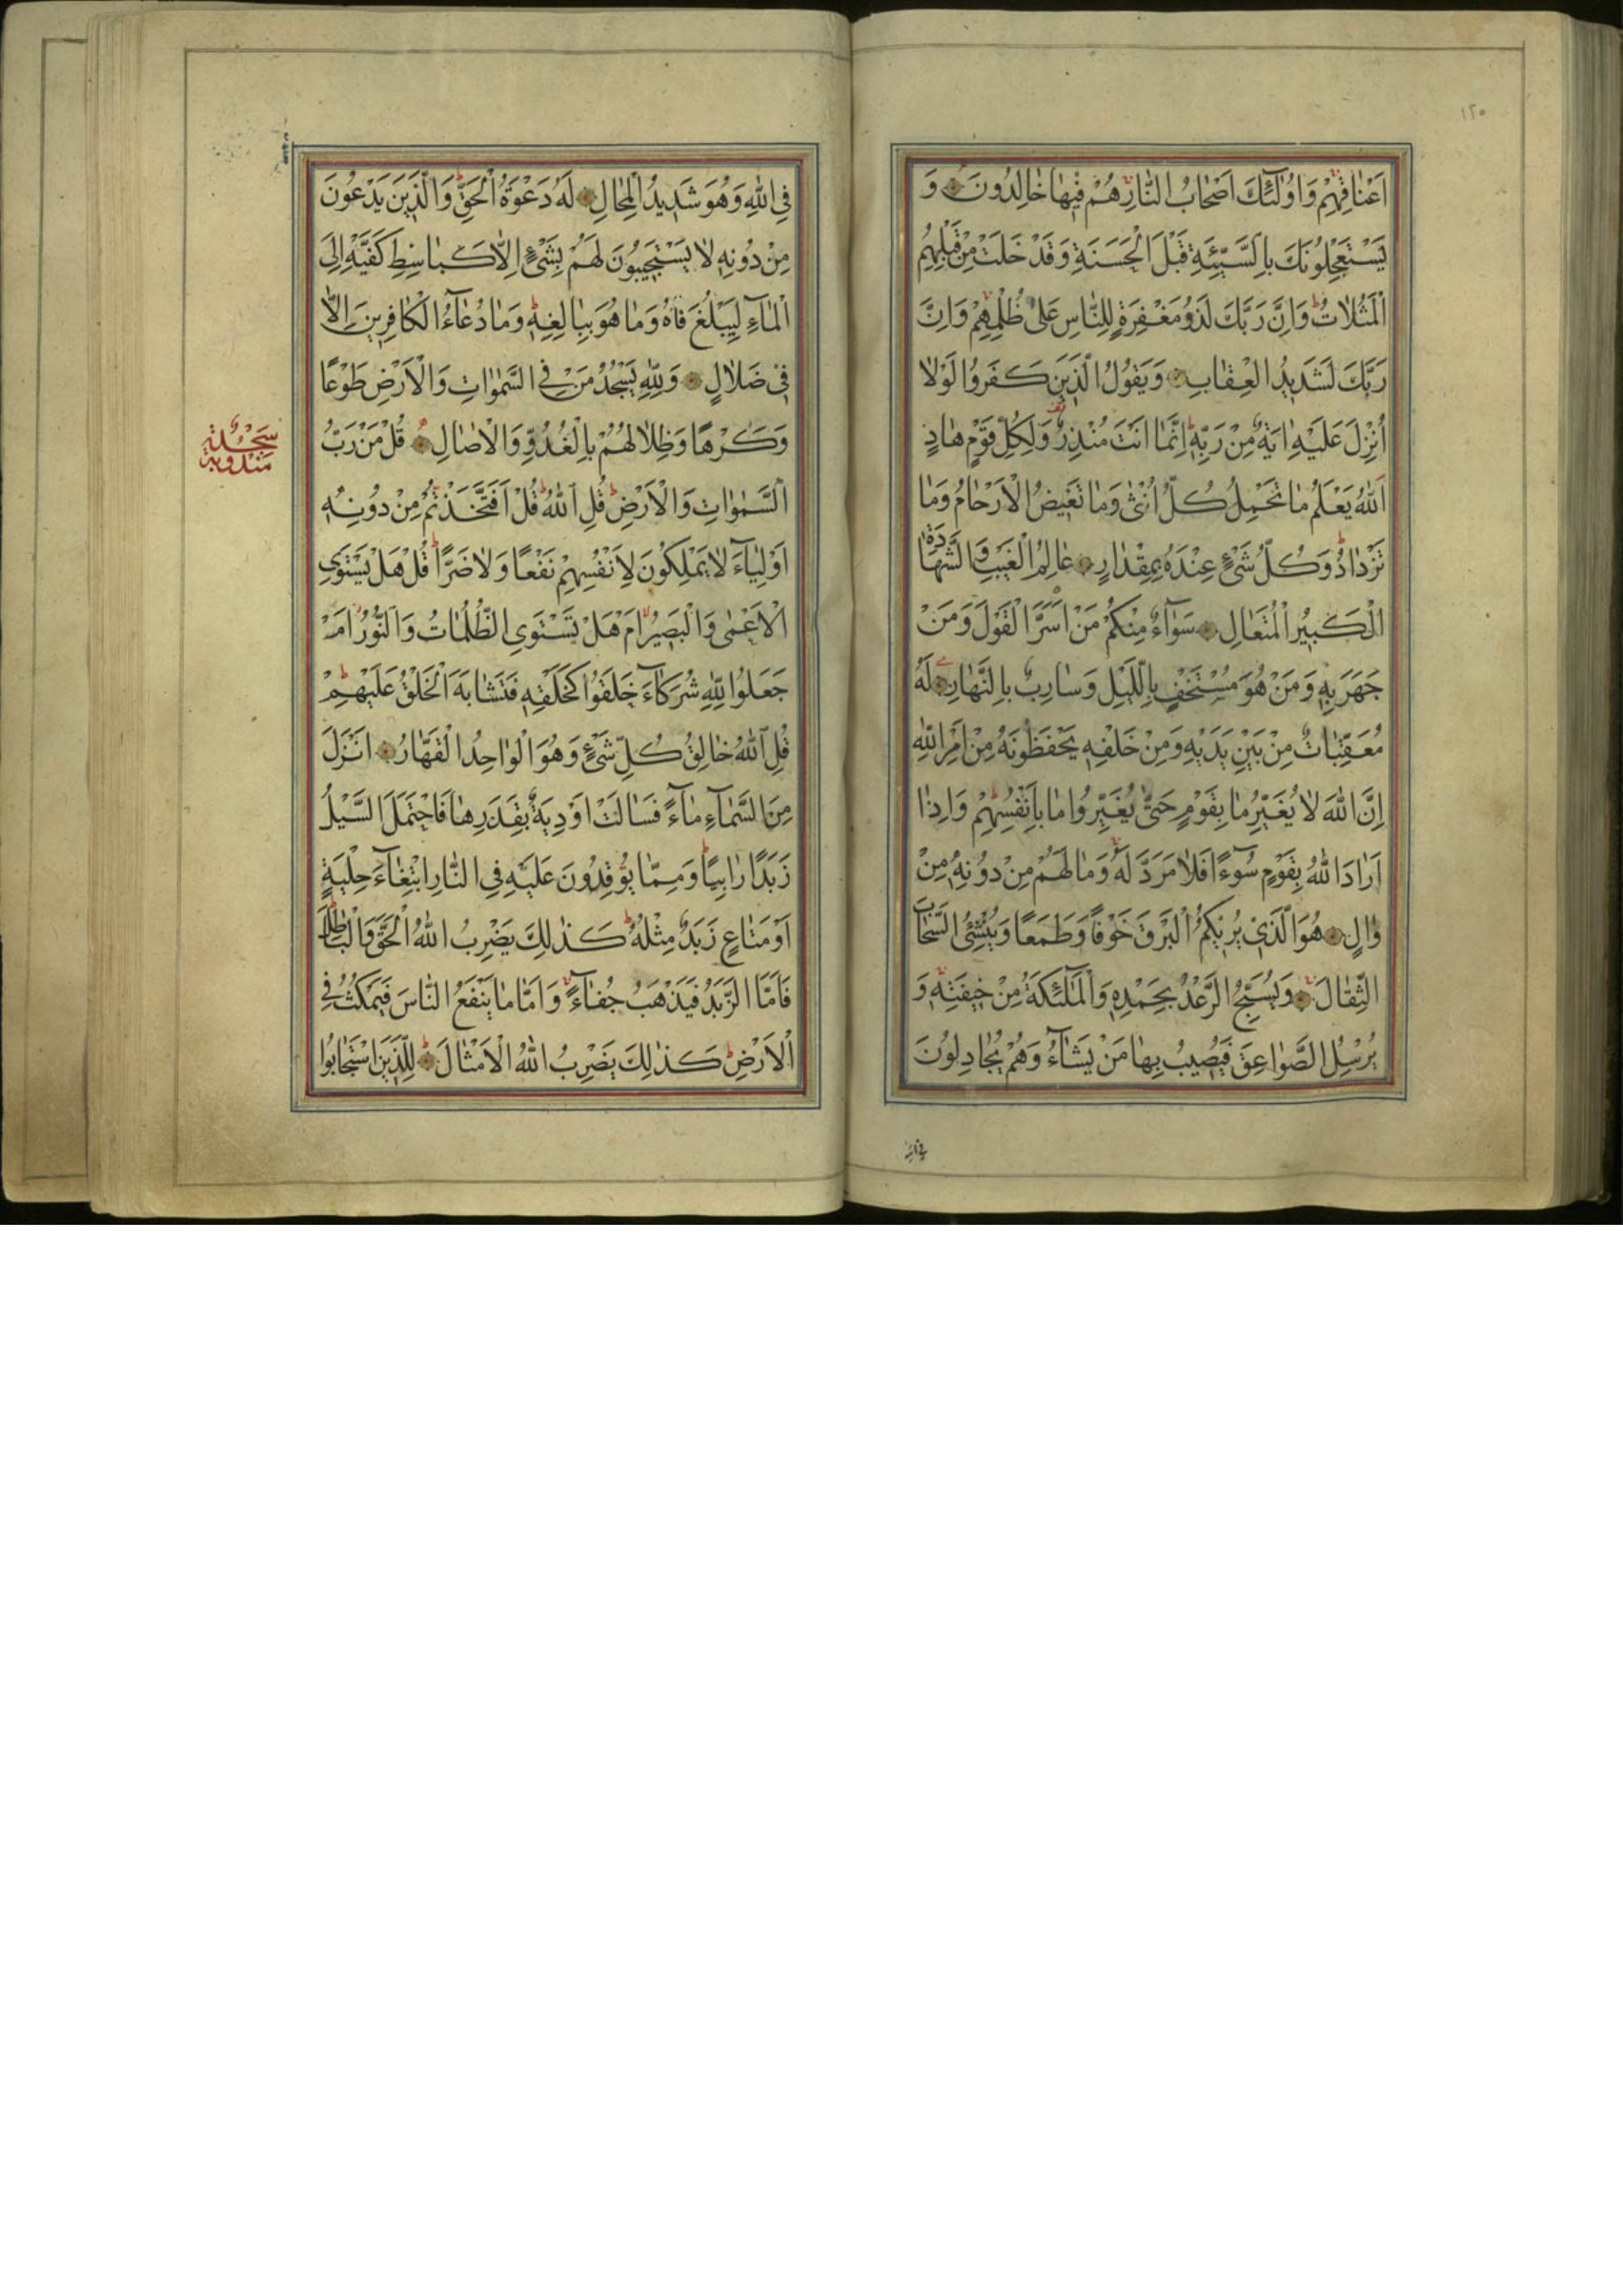 ١٢٠
اَعْنَاقِهِمْ وَاُولٰٓئِكَ اَصْحَابُ النَّارِ هُمْ فِيهَا خَالِدُونَ وَ
يَسْتَعْجِلُونَكَ بِالسَّيِّئَةِ قَبْلَ الْحَسَنَةِ وَقَدْ خَلَتْ مِنْ قَبْلِهِمُ
الْمَثُلَاتُ وَاِنَّ رَبَّكَ لَذُو مَغْفِرَةٍ لِلنَّاسِ عَلٰى ظُلْمِهِمْ وَاِنَّ
رَبَّكَ لَشَدِيدُ الْعِقَابِ وَيَقُولُ الَّذِينَ كَفَرُوا لَوْلَا
اُنْزِلَ عَلَيْهِ اٰيَةٌ مِنْ رَبِّهِ اِنَّمَا اَنْتَ مُنْذِرٌ وَلِكُلِّ قَوْمٍ هَادٍ
اَللّٰهُ يَعْلَمُ مَا تَحْمِلُ كُلُّ اُنْثٰى وَمَا تَغِيضُ الْاَرْحَامُ وَمَا
تَزْدَادُ وَكُلُّ شَيْءٍ عِنْدَهُ بِمِقْدَارٍ عَالِمُ الْغَيْبِ وَالشَّهَادَةِ
الْكَبِيرُ الْمُتَعَالِ سَوَآءٌ مِنْكُمْ مَنْ اَسَرَّ الْقَوْلَ وَمَنْ
جَهَرَ بِهِ وَمَنْ هُوَ مُسْتَخْفٍ بِالَّيْلِ وَسَارِبٌ بِالنَّهَارِ لَهُ
مُعَقِّبَاتٌ مِنْ بَيْنِ يَدَيْهِ وَمِنْ خَلْفِهِ يَحْفَظُونَهُ مِنْ اَمْرِ اللّٰهِ
اِنَّ اللّٰهَ لَا يُغَيِّرُ مَا بِقَوْمٍ حَتّٰى يُغَيِّرُوا مَا بِاَنْفُسِهِمْ وَاِذَا
اَرَادَ اللّٰهُ بِقَوْمٍ سُوٓءًا فَلَا مَرَدَّ لَهُ وَمَا لَهُمْ مِنْ دُونِهِ مِنْ
وَالٍ هُوَ الَّذِي يُرِيكُمُ الْبَرْقَ خَوْفًا وَطَمَعًا وَيُنْشِئُ السَّحَابَ
الثِّقَالَ وَيُسَبِّحُ الرَّعْدُ بِحَمْدِهِ وَالْمَلٰٓئِكَةُ مِنْ خِيفَتِهِ وَ
يُرْسِلُ الصَّوَاعِقَ فَيُصِيبُ بِهَا مَنْ يَشَآءُ وَهُمْ يُجَادِلُونَ
فِي اللّٰهِ
فِي اللّٰهِ وَهُوَ شَدِيدُ الْمِحَالِ لَهُ دَعْوَةُ الْحَقِّ وَالَّذِينَ يَدْعُونَ
مِنْ دُونِهِ لَا يَسْتَجِيبُونَ لَهُمْ بِشَيْءٍ اِلَّا كَبَاسِطِ كَفَّيْهِ اِلَى
الْمَآءِ لِيَبْلُغَ فَاهُ وَمَا هُوَ بِبَالِغِهِ وَمَا دُعَآءُ الْكَافِرِينَ اِلَّا
فِي ضَلَالٍ وَلِلّٰهِ يَسْجُدُ مَنْ فِي السَّمٰوَاتِ وَالْاَرْضِ طَوْعًا
وَكَرْهًا وَظِلَالُهُمْ بِالْغُدُوِّ وَالْاٰصَالِ قُلْ مَنْ رَبُّ
السَّمٰوَاتِ وَالْاَرْضِ قُلِ اللّٰهُ قُلْ اَفَتَّخَذْتُمْ مِنْ دُونِهِ
اَوْلِيَآءَ لَا يَمْلِكُونَ لِاَنْفُسِهِمْ نَفْعًا وَلَا ضَرًّا قُلْ هَلْ يَسْتَوِي
الْاَعْمٰى وَالْبَصِيرُ اَمْ هَلْ تَسْتَوِي الظُّلُمَاتُ وَالنُّورُ اَمْ
جَعَلُوا لِلّٰهِ شُرَكَآءَ خَلَقُوا كَخَلْقِهِ فَتَشَابَهَ الْخَلْقُ عَلَيْهِمْ
قُلِ اللّٰهُ خَالِقُ كُلِّ شَيْءٍ وَهُوَ الْوَاحِدُ الْقَهَّارُ اَنْزَلَ
مِنَ السَّمَآءِ مَآءً فَسَالَتْ اَوْدِيَةٌ بِقَدَرِهَا فَاحْتَمَلَ السَّيْلُ
زَبَدًا رَابِيًا وَمِمَّا يُوقِدُونَ عَلَيْهِ فِي النَّارِ ابْتِغَآءَ حِلْيَةٍ
اَوْ مَتَاعٍ زَبَدٌ مِثْلُهُ كَذٰلِكَ يَضْرِبُ اللّٰهُ الْحَقَّ وَالْبَاطِلَ
فَاَمَّا الزَّبَدُ فَيَذْهَبُ جُفَآءً وَاَمَّا مَا يَنْفَعُ النَّاسَ فَيَمْكُثُ فِي
الْاَرْضِ كَذٰلِكَ يَضْرِبُ اللّٰهُ الْاَمْثَالَ لِلَّذِينَ اسْتَجَابُوا
سَجْدَةٌ
مَنْدُوبَةٌ